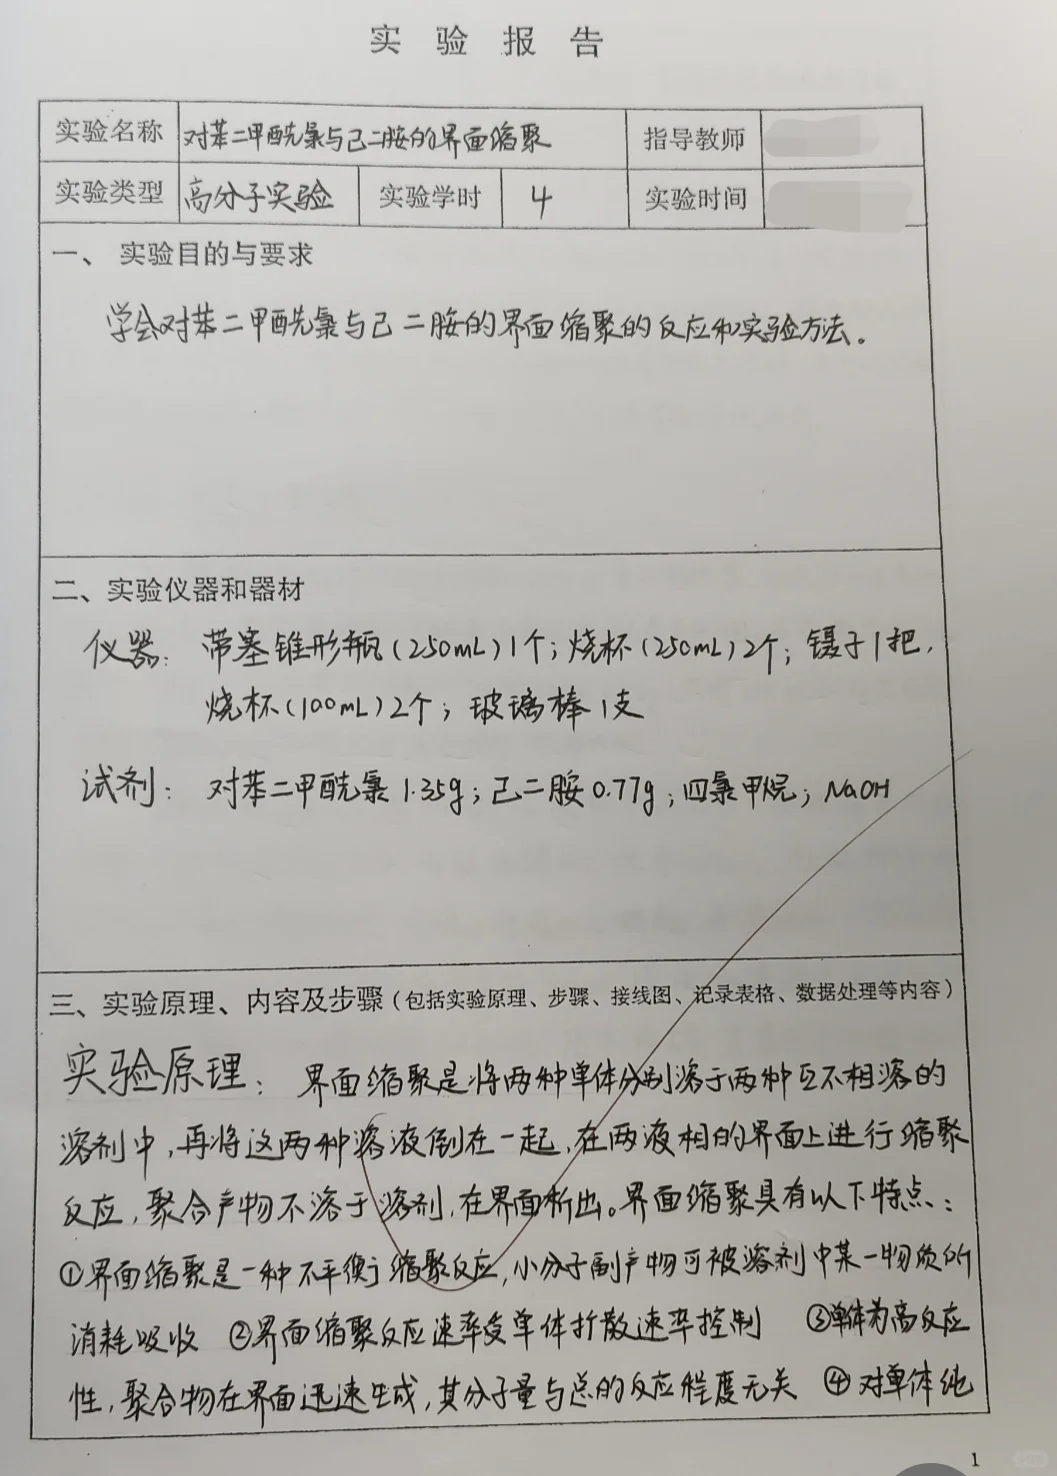 实验报告
实验名称 对苯二甲酰氯与己二胺的界面缩聚 指导教师
实验类型 高分子实验 实验学时 4 实验时间
一、实验目的与要求
学会对苯二甲酰氯与己二胺的界面缩聚的反应和实验方法。
二、实验仪器和器材
仪器：带塞锥形瓶(250mL)1个；烧杯(250mL)2个；镊子1把，
烧杯(100mL)2个；玻璃棒1支
试剂：对苯二甲酰氯1.35g；己二胺0.77g；四氯甲烷；NaOH
三、实验原理、内容及步骤(包括实验原理、步骤、接线图、记录表格、数据处理等内容)
实验原理：界面缩聚是将两种单体分别溶于两种互不相溶的
溶剂中,再将这两种溶液倒在一起,在两液相的界面上进行缩聚
反应,聚合产物不溶于溶剂,在界面析出。界面缩聚具有以下特点：
①界面缩聚是一种不平衡缩聚反应,小分子副产物可被溶剂中某一物质所
消耗吸收 ②界面缩聚反应速率受单体扩散速率控制 ③单体为高反应
性,聚合物在界面迅速生成,其分子量与总的反应程度无关 ④对单体纯
1